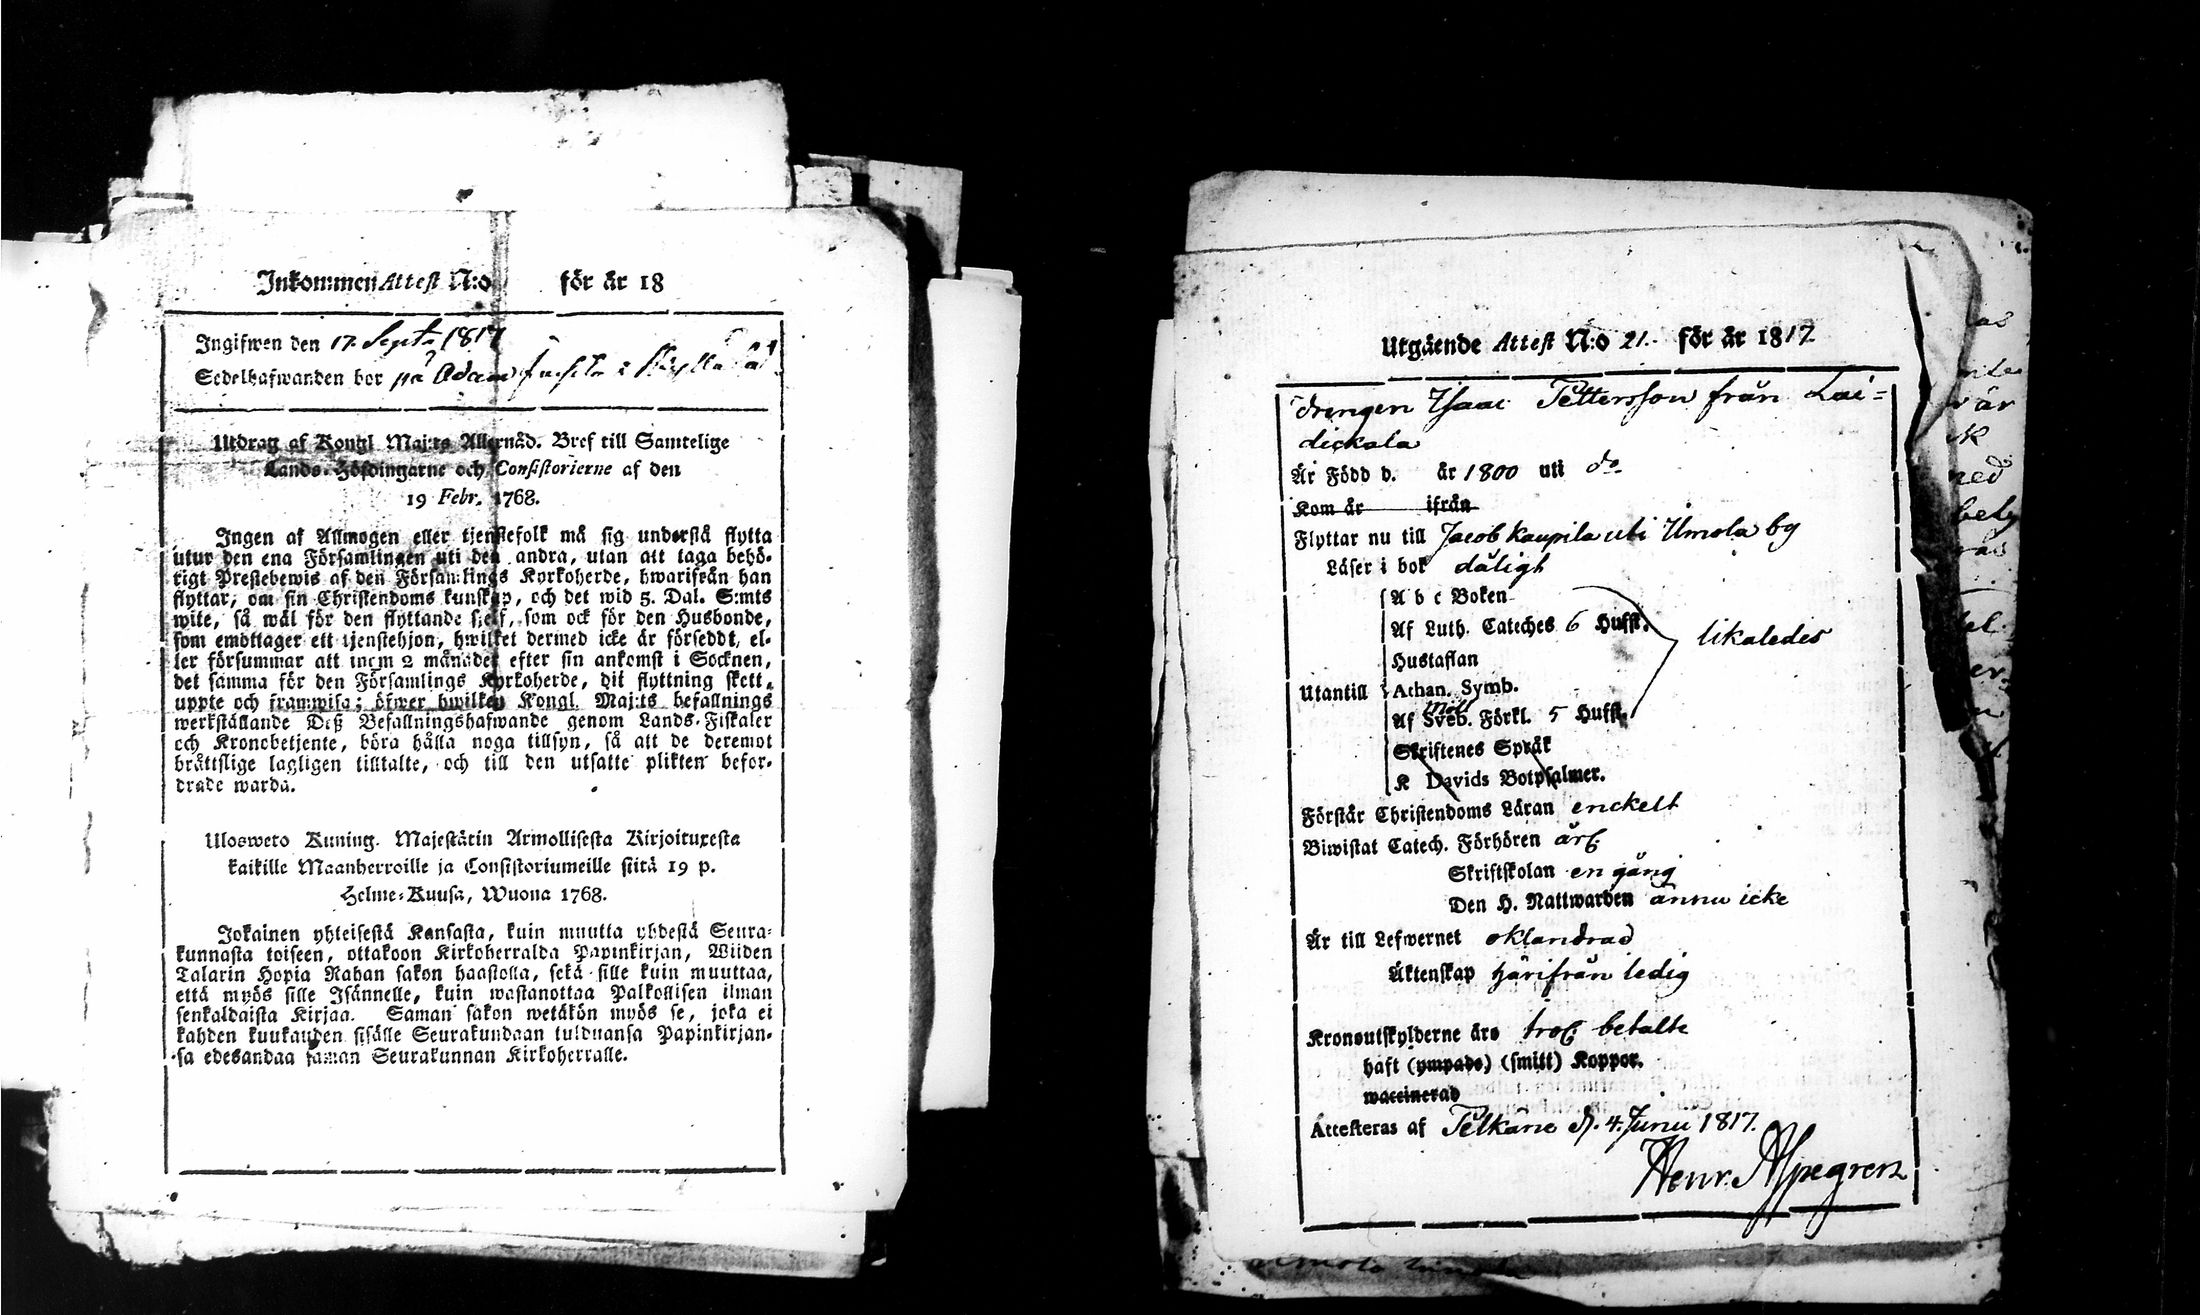 Inkommen Attest N:o för år 18
Ingifwen den 17. Sept. 1817
Sedelhafwanden bor på Adam
Utdrag af Kongl Maj:ts Allernåd. Bref till Samtelige
Lands-Höfdingarne och Consistorierne af den
19 Febr. 1768.
Ingen af Allmogen eller tjenstefolk må sig understå flytta
utur den ena Församlingen uti den andra, utan att taga behö-
rigt Prestebewis af den Församlings Kyrkoherde, hwarifrån han
flyttar, om sin Christendoms kunskap, och det wid 5. Dal. S:mts
wite, så wäl för den flyttande sjelf, som ock för den Husbonde,
som emottager ett tjenstehjon, hwilket dermed icke är försedt, el-
ler försummar att inom 2 månader efter sin ankomst i Socknen,
det samma för den Församlings Kyrkoherde, dit flyttning skett,
uppte och framwisa; öfwer hwilken Kongl. Maj:ts befallnings
werkställande Deß Befallningshafwande genom Lands-Fiskaler
och Kronobetjente, böra hålla noga tillsyn, så att de deremot
bråttslige lagligen tilltalte, och till den utsatte plikten befor-
drade warda.
Ulosweto Kuning. Majestätin Armollisesta Kirjoituxesta
kaikille Maanherroille ja Consistoriumeille siitä 19 p.
Helme-Kuusa, Wuona 1768.
Jokainen yhteisestä Kansasta, kuin muutta yhdestä Seura-
kunnasta toiseen, ottakoon Kirkoherralda Papinkirjan, Wiiden
Talarin Hopia Rahan sakon haastolla, sekä sille kuin muuttaa,
että myös sille Isännelle, kuin wastanottaa Palkollisen ilman
senkaldaista Kirjaa. Saman sakon wetäkön myös se, joka ei
kahden kuukauden sisälle Seurakundaan tulduansa Papinkirjan-
sa edesandaa saman Seurakunnan Kirkoherralle.
Utgående Attest N:o 21. för år 1817
Drengen Isaac Pettersson från Lai=
dickala
Är Född d. år 1800 uti do
Kom år ifrån
Flyttar nu till Jacob Kaupila uti Umola by
Läser i bok dåligt
A b c Boken
Af Luth. Cateches 6 Hufst.
likaledes
Hustaflan
Utantill Athan. Symb.
Möll
Af Sveb. Förkl. 5 Hufst.
Skriftenes Språk
K Davids Botpsalmer.
Förstår Christendoms Läran enckelt
Biwistat Catech. Förhören årl.
Skriftskolan en gång
Den H. Nattwarden ännu icke
Är till Lefwernet oklandrad
Äktenskap härifrån ledig
Kronoutskylderne äro trol. betalte
haft (ympade) (smitt) Koppor.
waccinerad
Attesteras af Pelkäne d. 4. Junii 1817.
Henr. Alpegren